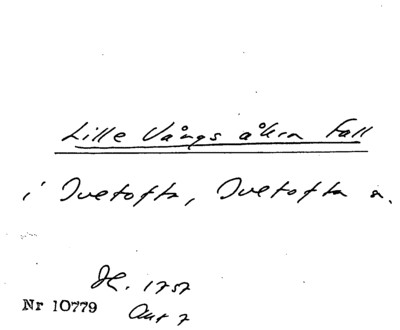 Lille Vångs åkra Fall
i Ivetofta, Ivetofta s.
H. 1757
Nr 10779 Akt 7